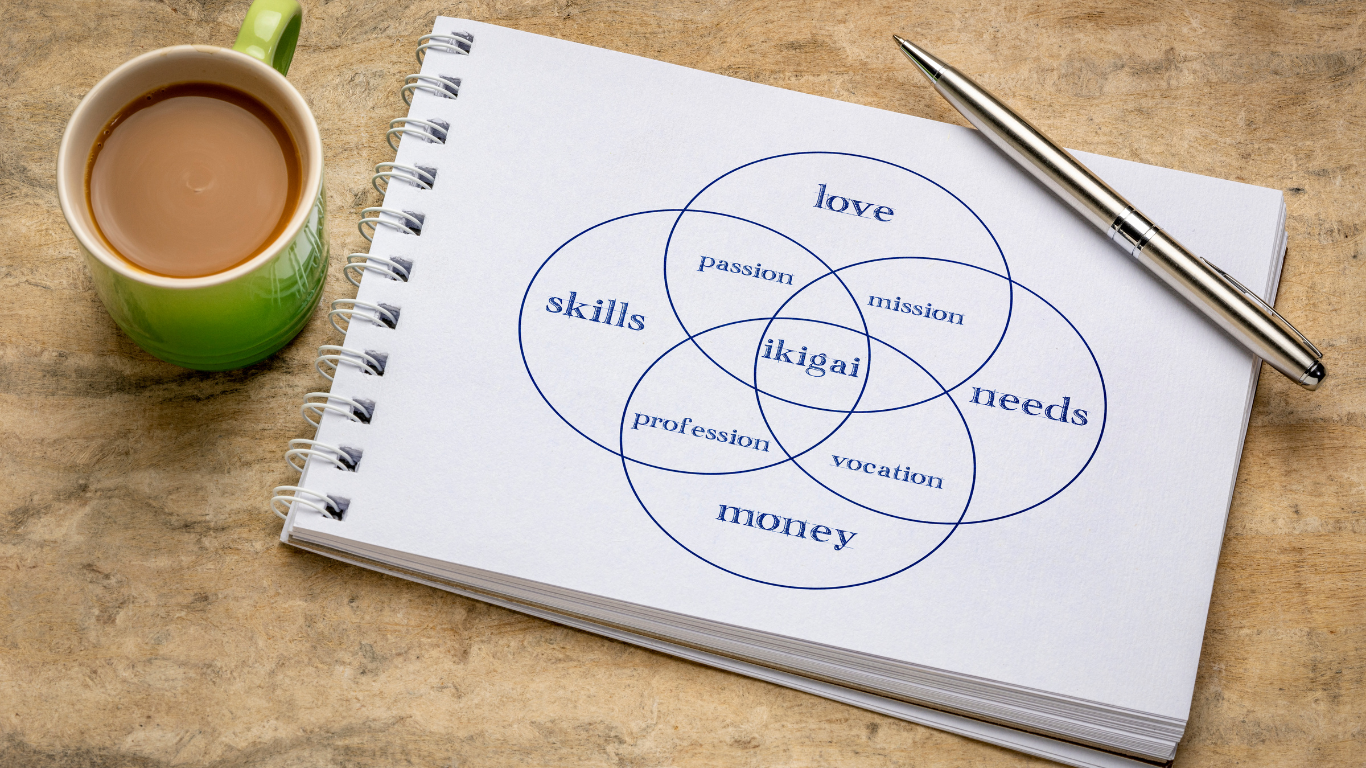 love
passion
mission
skills
ikigai
needs
profession
vocation
money